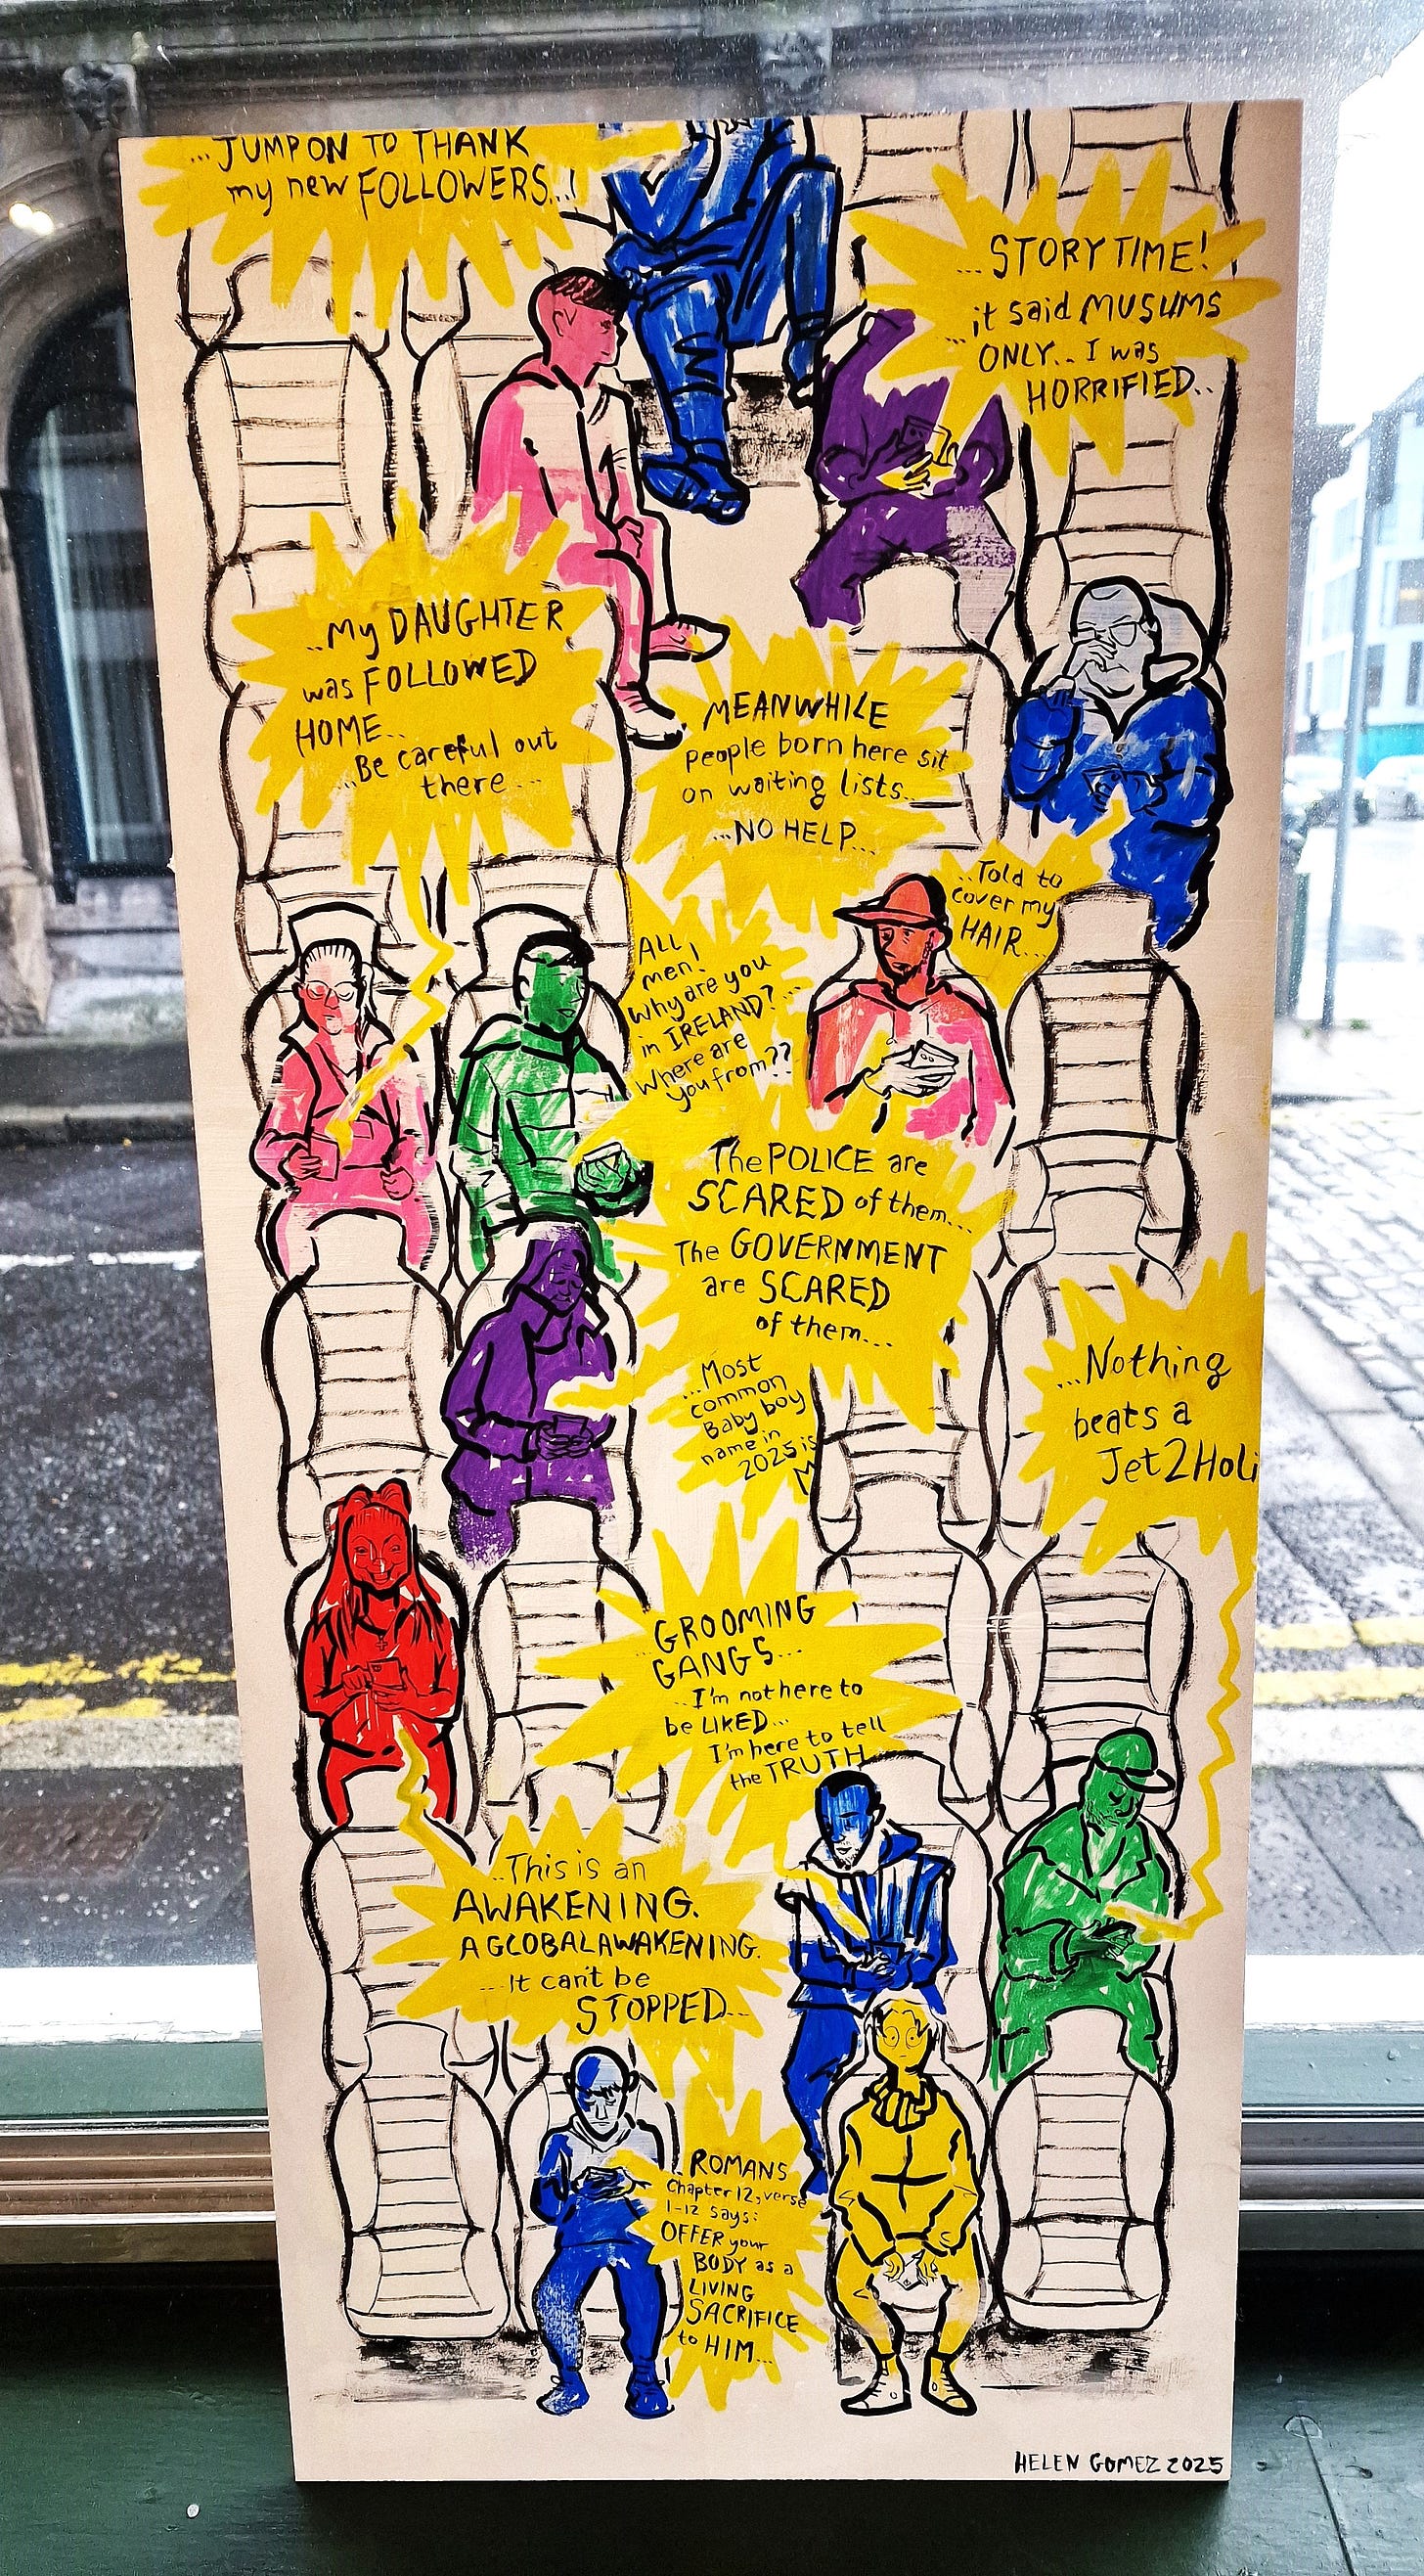 ...JUMP ON TO THANK
my new FOLLOWERS...!
...STORY TIME!
...it said MUSLIMS
ONLY... I was
HORRIFIED..
..My DAUGHTER
was FOLLOWED
HOME..
...Be careful out
there...
MEANWHILE
people born here sit
on waiting lists...
...NO HELP...
..Told to
cover my
HAIR...
ALL
men!
Why are you
in IRELAND?...
Where are
you from??
The POLICE are
SCARED of them...
The GOVERNMENT
are SCARED
of them...
...Most
common
Baby boy
name in
2025 is
M
...Nothing
beats a
Jet2Holi
GROOMING
GANGS...
..I'm not here to
be LIKED...
I'm here to tell
the TRUTH
..This is an
AWAKENING.
A GLOBAL AWAKENING.
...It can't be
STOPPED...
..ROMANS
Chapter 12, verse
1-12 says:
OFFER your
BODY as a
LIVING
SACRIFICE
to HIM...
HELEN GOMEZ 2025